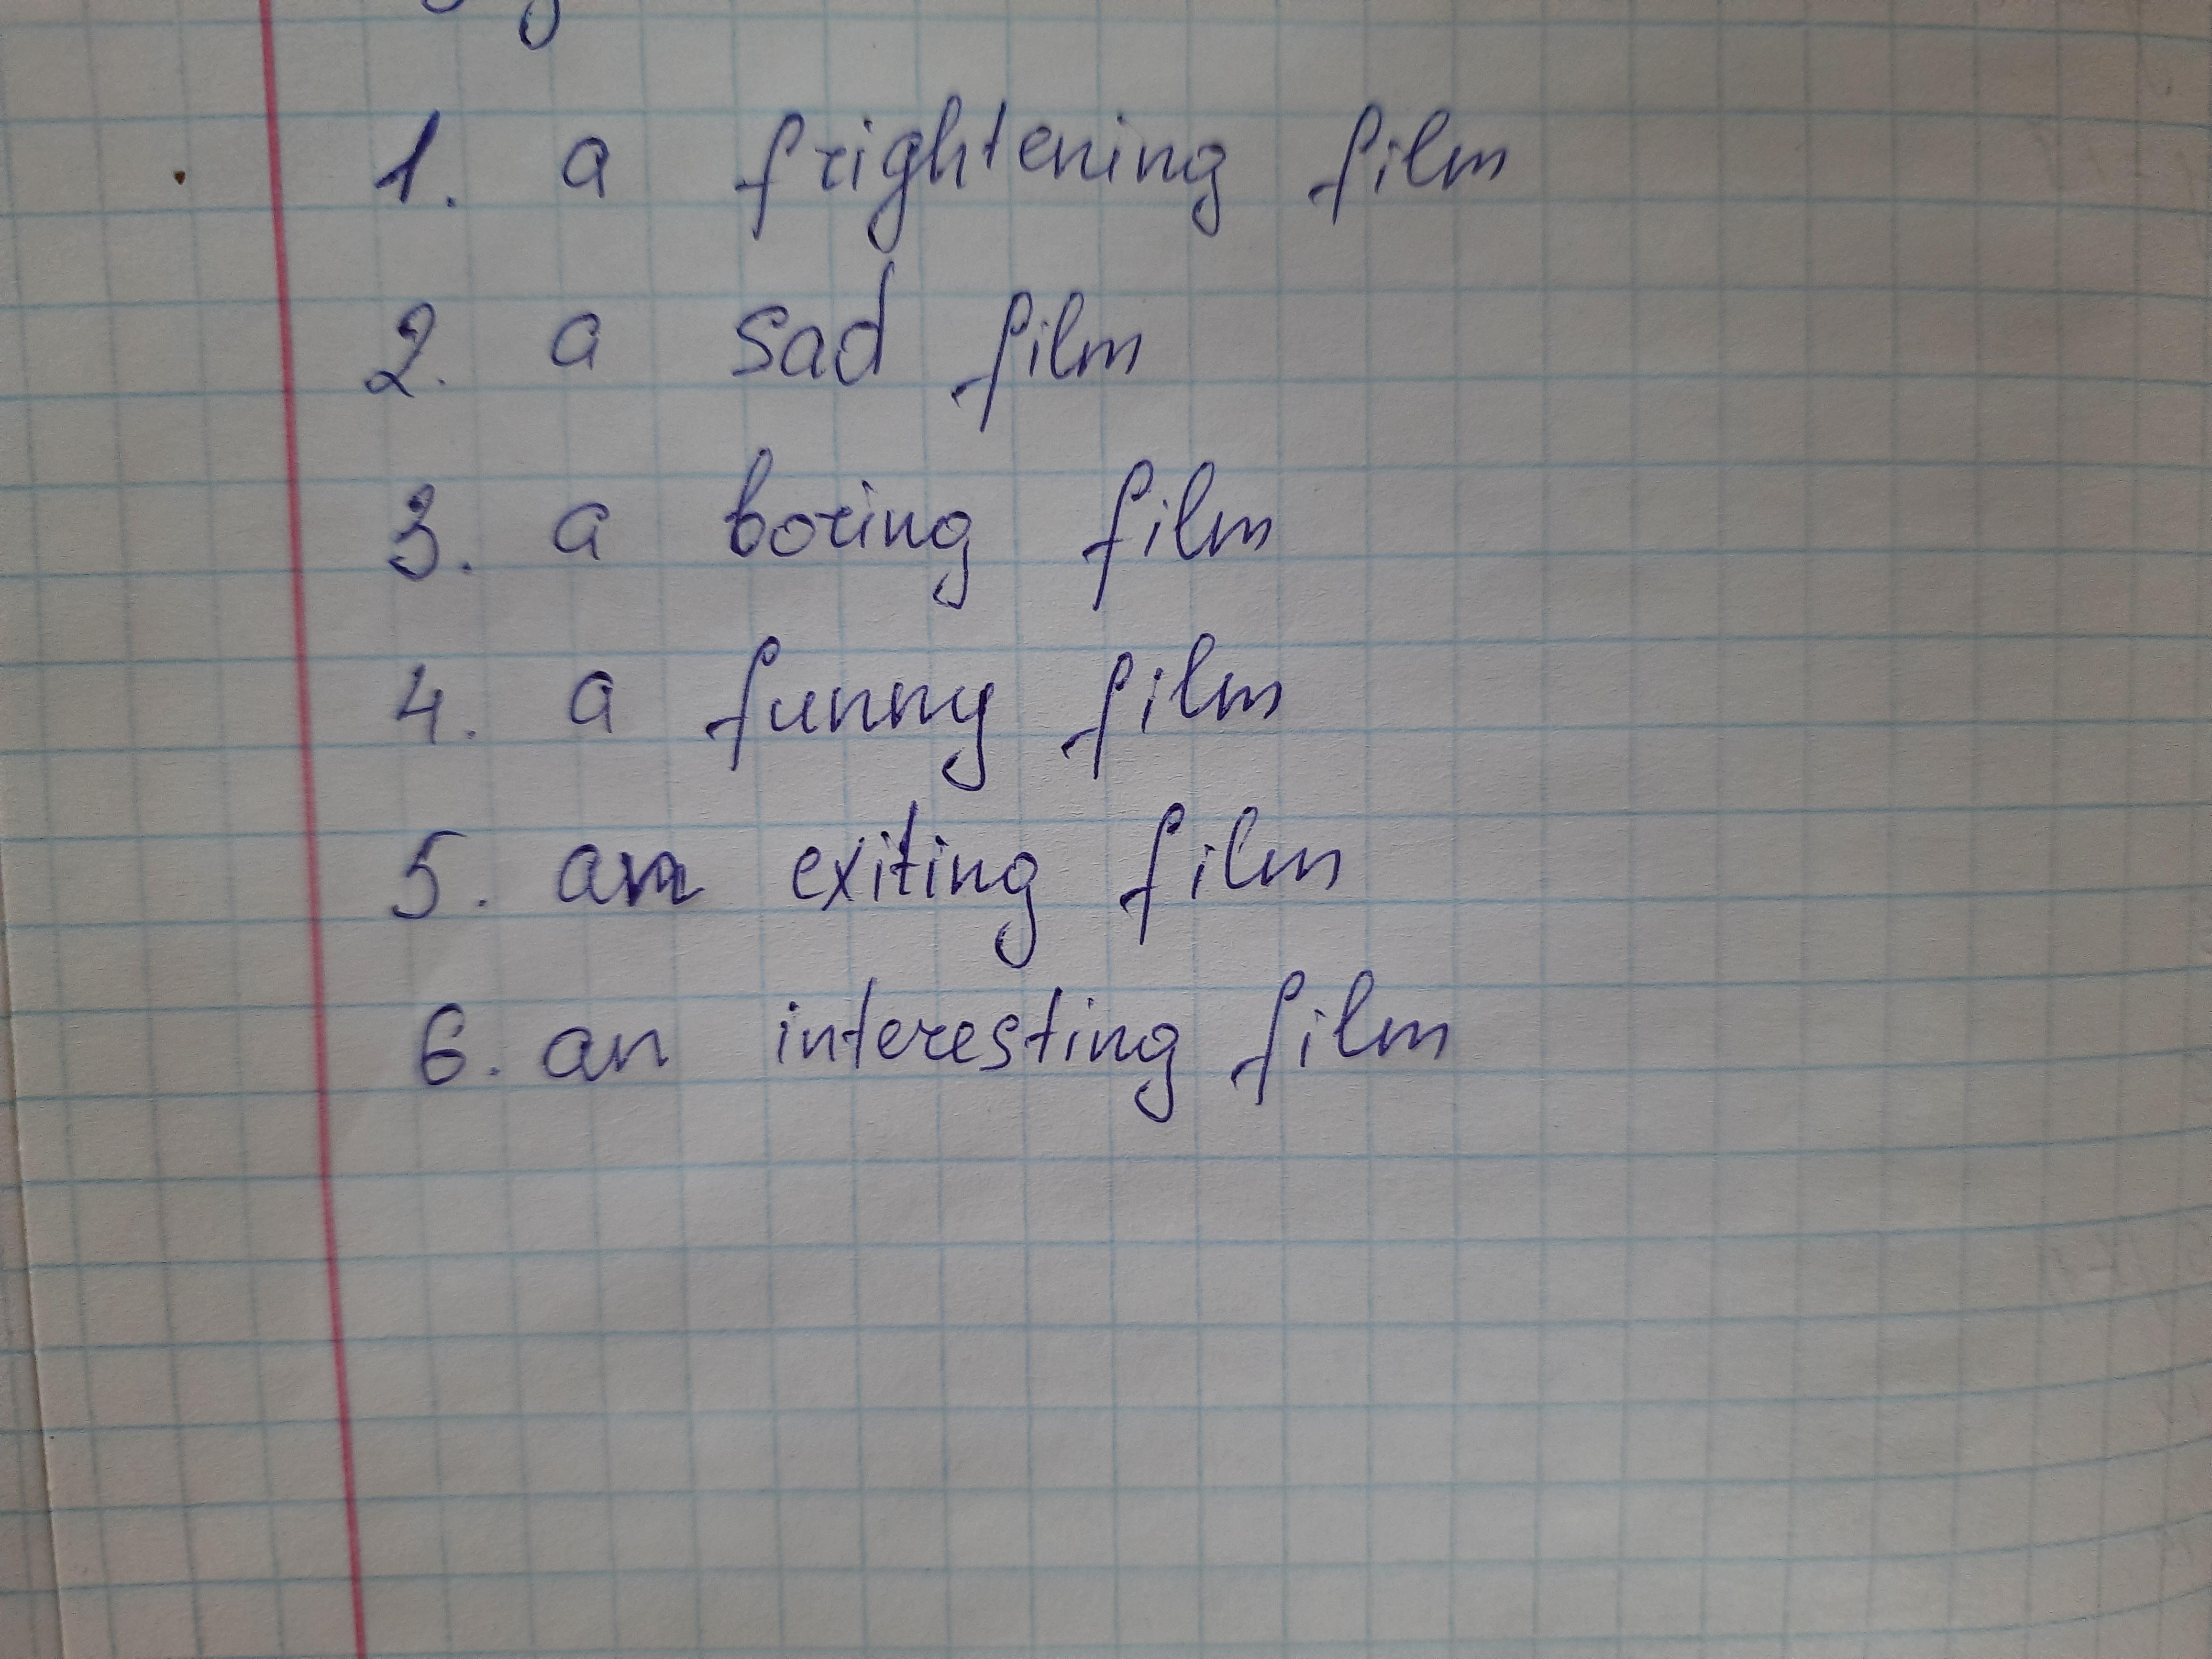 1. a frightening film
2. a sad film
3. a boring film
4. a funny film
5. an exiting film
6. an interesting film